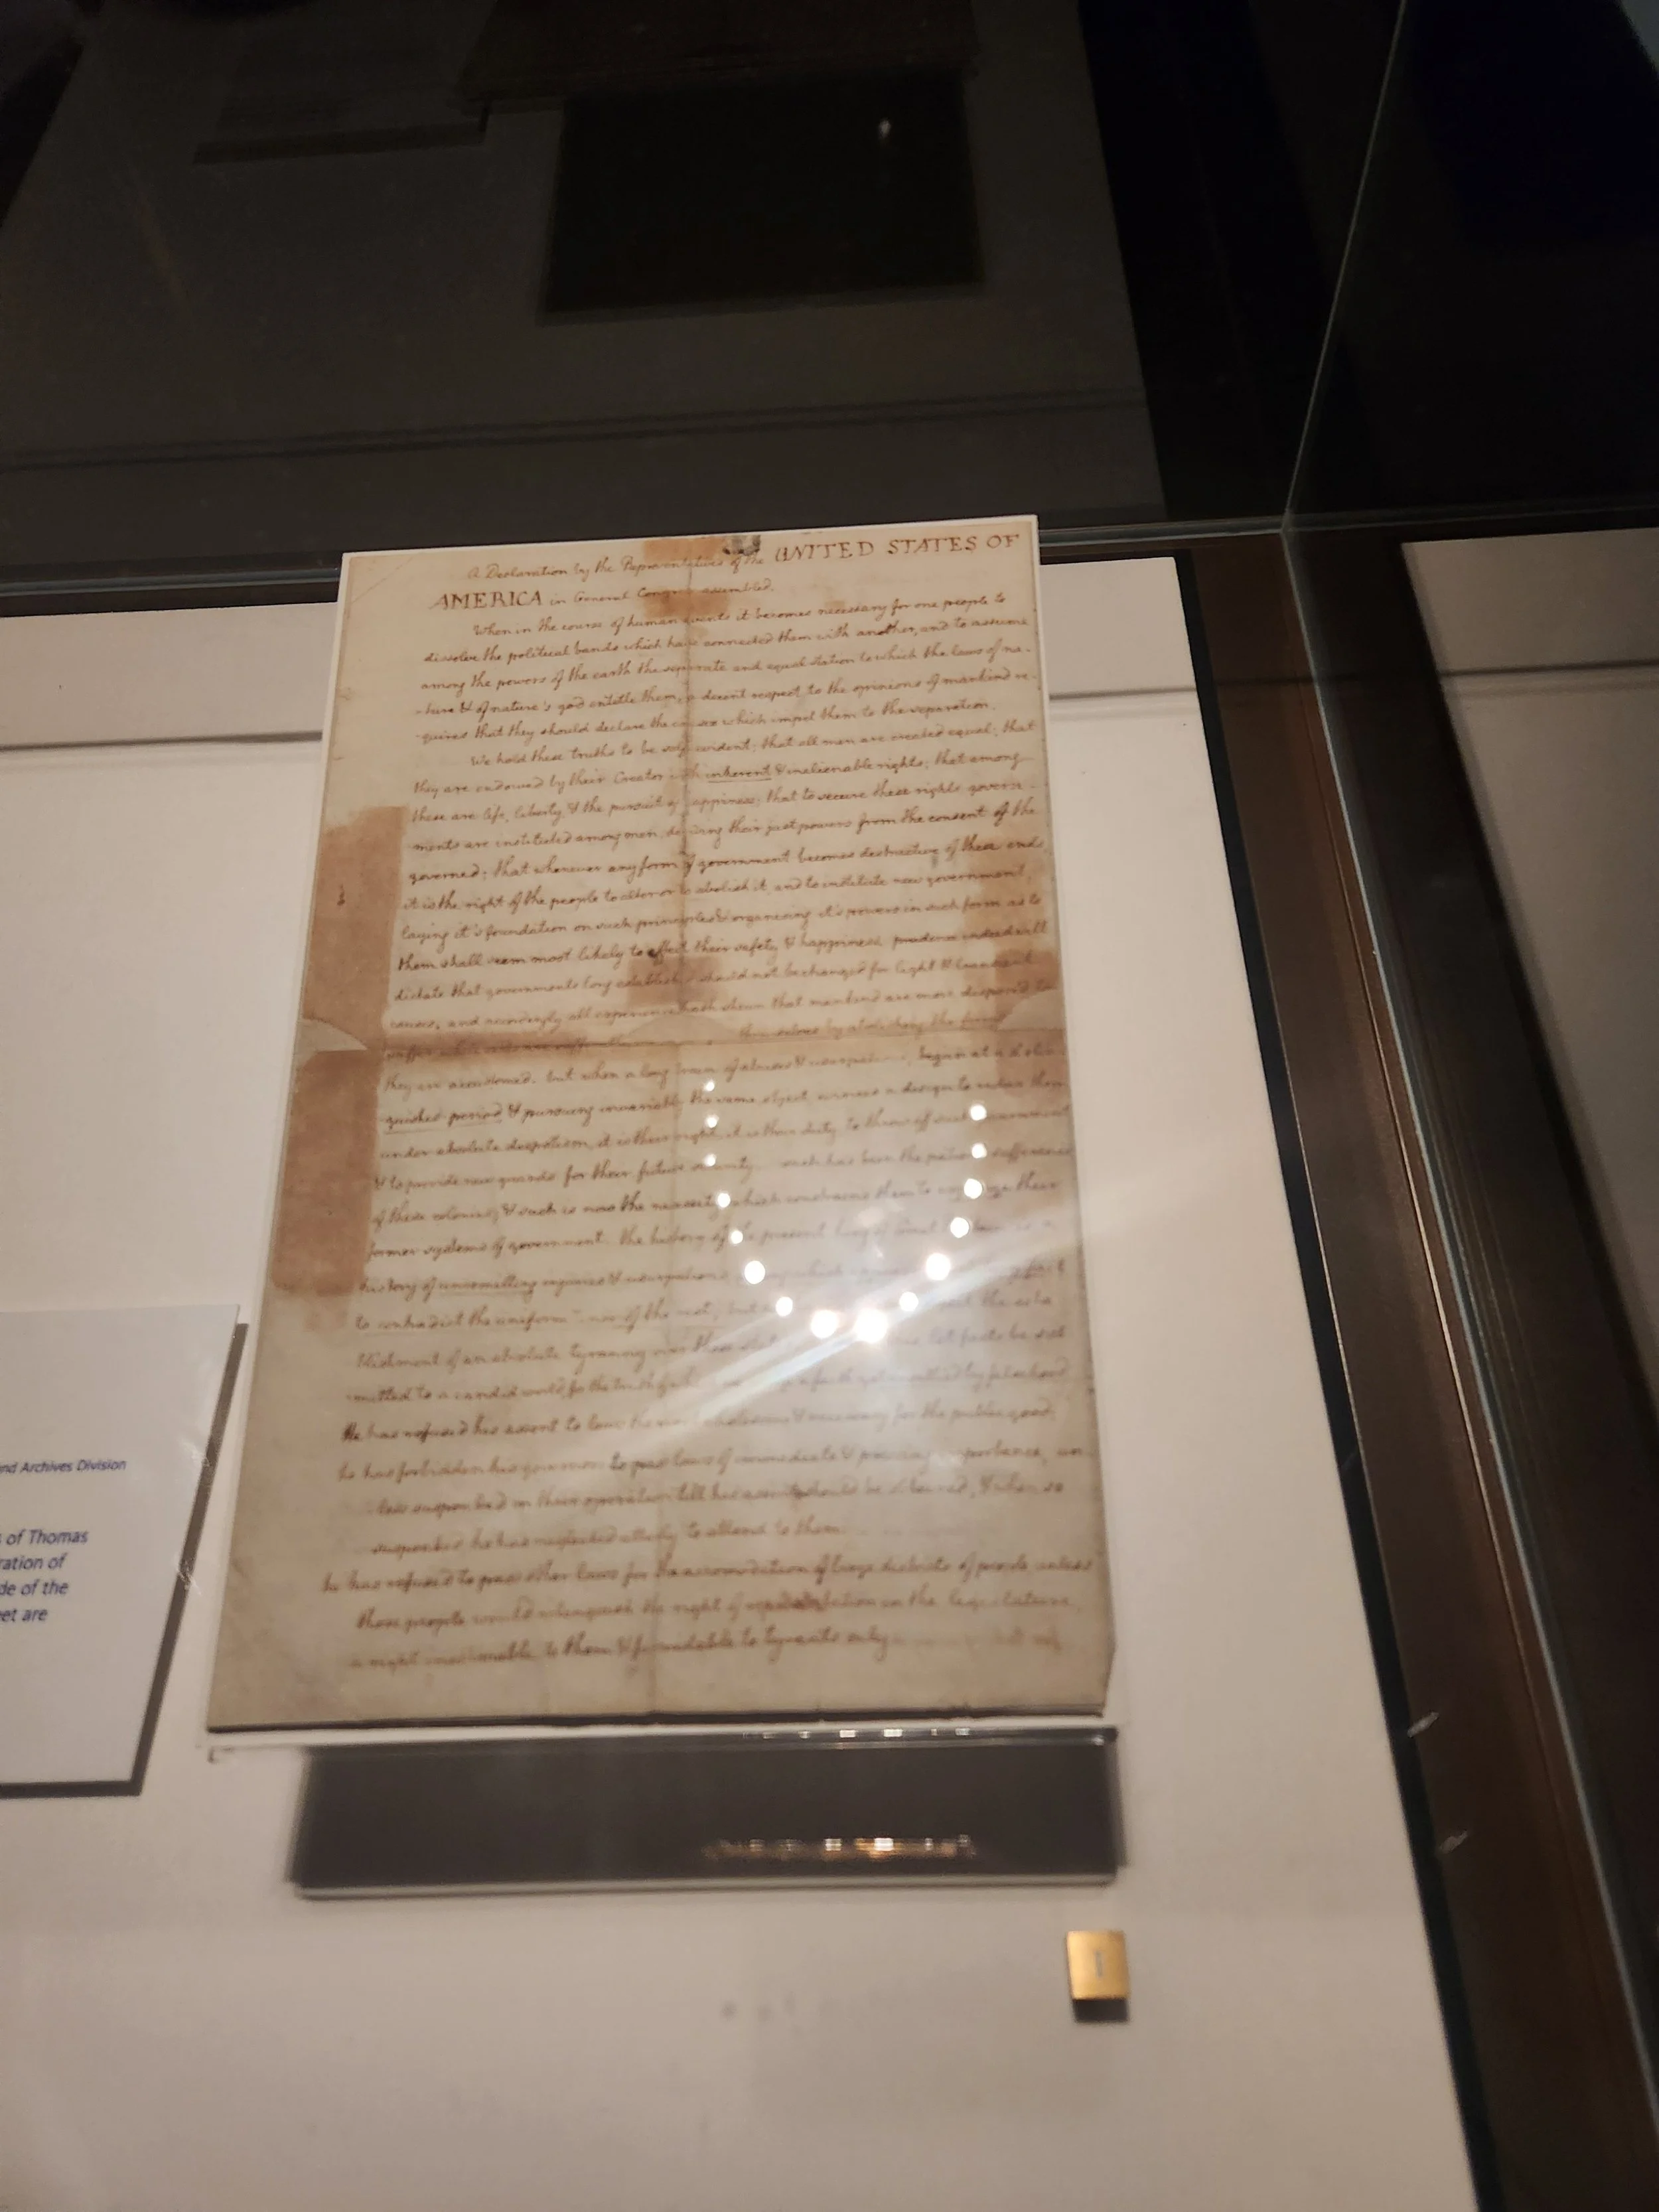 A Declaration by the Representatives of the UNITED STATES OF
AMERICA in General Congress assembled.
When in the course of human events it becomes necessary for one people to
dissolve the political bands which have connected them with another, and to assume
among the powers of the earth the separate and equal station to which the laws of na-
-ture & of nature's god entitle them, a decent respect to the opinions of mankind re-
quires that they should declare the causes which impel them to the separation.
We hold these truths to be self evident; that all men are created equal; that
they are endowed by their Creator with inherent & inalienable rights; that among
these are life, liberty, & the pursuit of happiness; that to secure these rights, govern-
ments are instituted among men, deriving their just powers from the consent of the
governed; that whenever any form of government becomes destructive of these ends,
it is the right of the people to alter or to abolish it, and to institute new government,
laying it's foundation on such principles & organising it's powers in such form as to
them shall seem most likely to effect their safety & happiness. prudence indeed will
dictate that governments long established should not be changed for light & transient
causes. and accordingly all experience hath shewn that mankind are more disposed to
suffer while evils are themselves by abolishing the forms
they are accustomed. but when a long train of abuses & begun at a distin-
guished period & pursuing invariably the same object, evinces a design to reduce them
under absolute despotism, it is their right, it is their duty, to throw off such government
& to provide new guards for their future security. such has been the patient sufferance
of these colonies, & such is now the necessity which constrains them to their
former systems of government. the history of the present king of Great is a
history of unremitting injuries & usurpations,
to contradict the uniform of the rest, but
blishment of an absolute tyranny over these let facts be sub
mitted to a candid world, for the truth of a faith yet unsullied by falsehood
He has refused his assent to laws the most wholesome & necessary for the public good.
he has forbidden his governors to pass laws of immediate & pressing importance, un-
less suspended in their operation till his assent should be obtained, & when so
suspended he has neglected utterly to attend to them.
he has refused to pass other laws for the accomodation of large districts of people unless
those people would relinquish the right of representation in the legislature,
a right inestimable to them & formidable to tyrants only
nd Archives Division
s of Thomas
ration of
de of the
et are
1